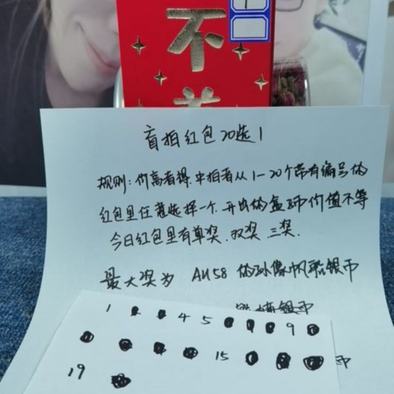 不
盲拍红包20选1
规则:价高者得.中拍者从1-20个带有编号的
红包里任意选择一个.开出的盒币价值不等
今日红包里有单奖.双奖.三奖.
最大奖为 AU58 的孙像帆船银币
银币
1 4 5 9
15
币
19